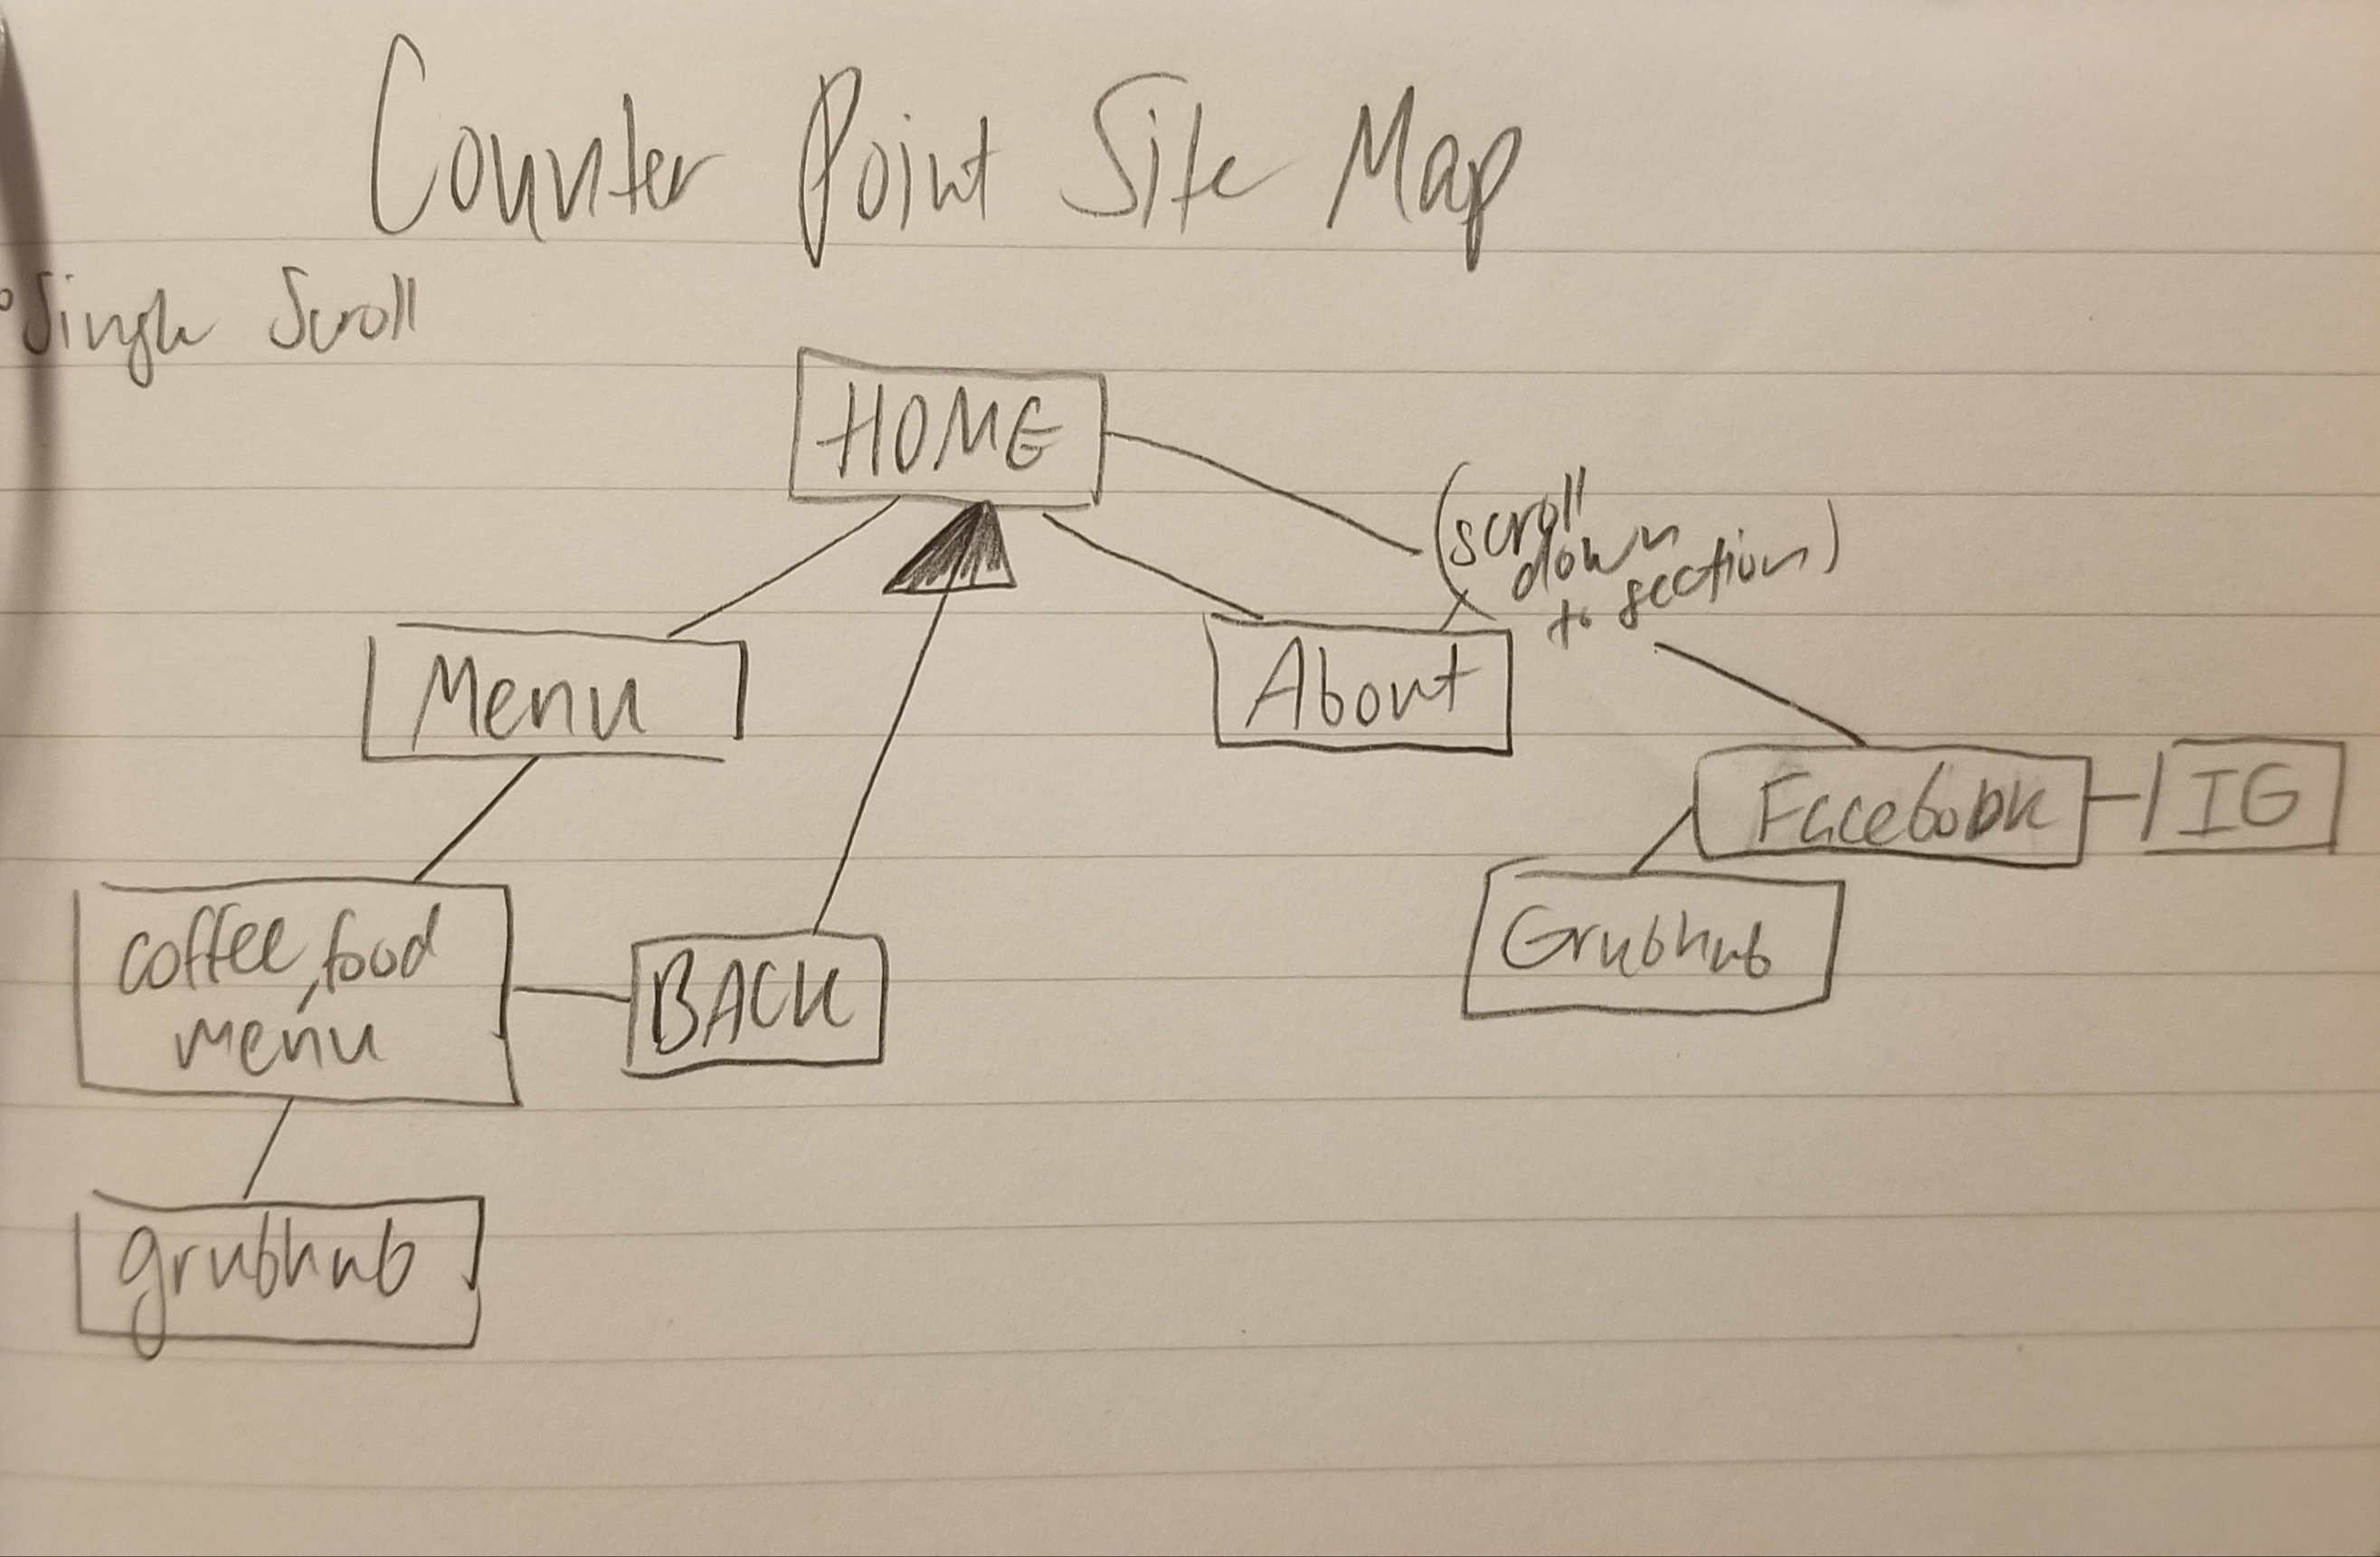 Counter Point Site Map
Single Scroll
HOME
(scroll
down
to section)
Menu
About
Facebook
IG
coffee, food
menu
BACK
Grubhub
grubhub